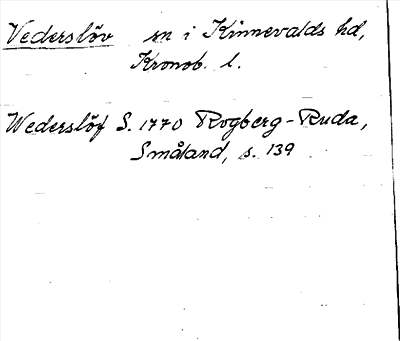 Vederslöv sn i Kinnevalds hd,
Kronob. l.
Wederslöf S. 1770 Rogberg-Ruda,
Småland, s. 139